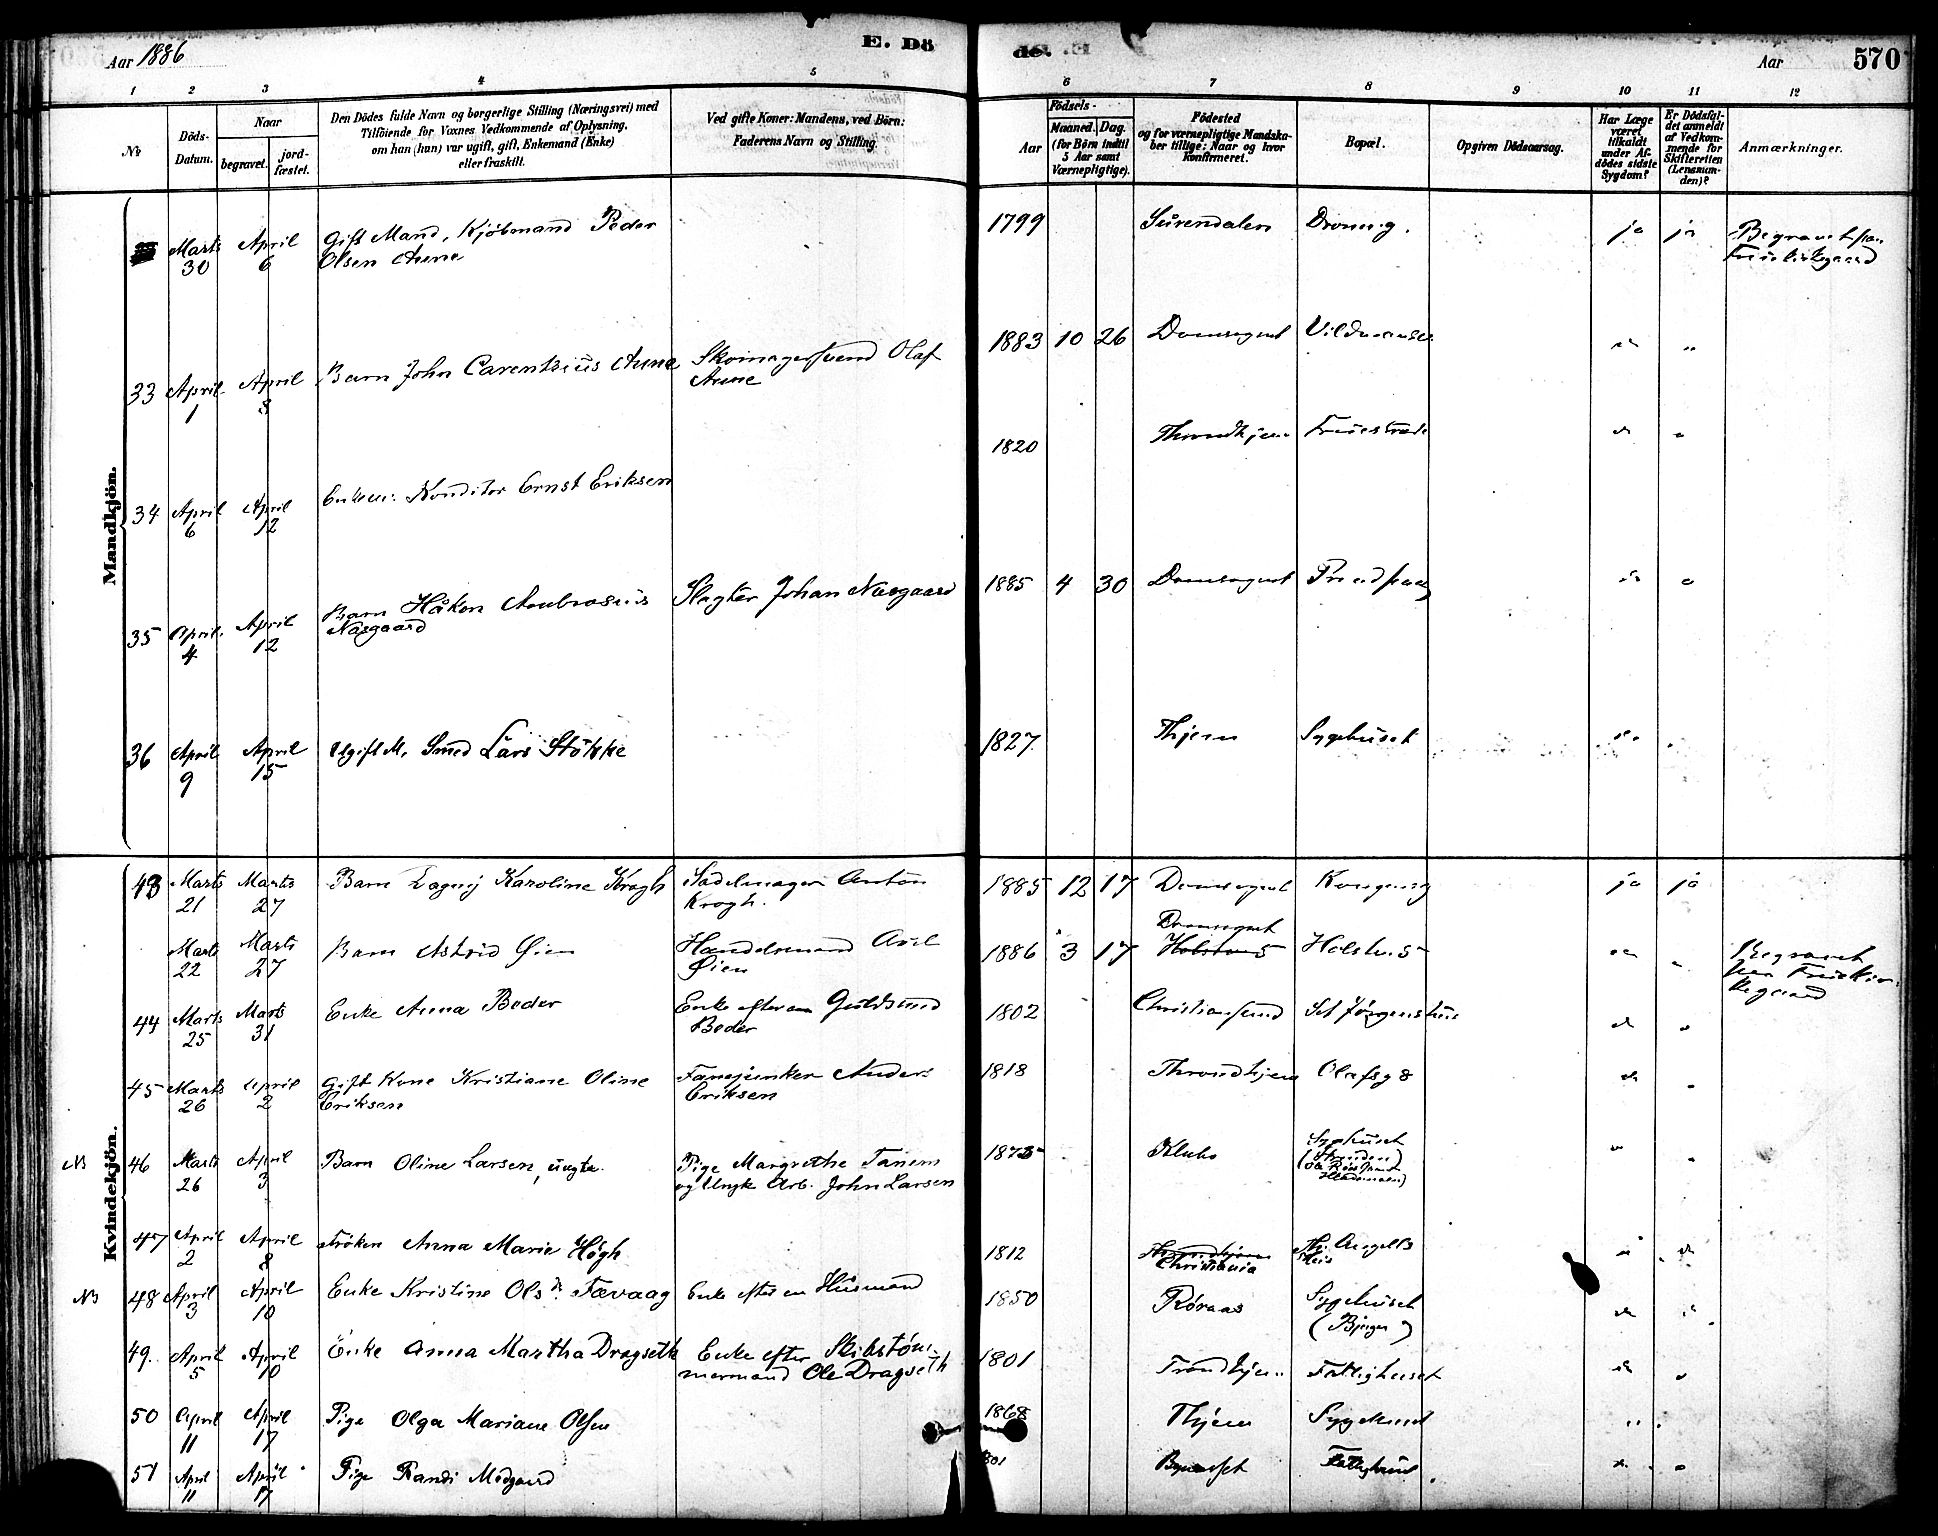 Aar 1886
E. Dö
de. E.
Aar
570
1 2 3 4 5 6 7 8 9 10 11 12
№
Döds-
Datum.
Naar
begravet.
jord-
fæstet.
Den Dödes fulde Navn og borgerlige Stilling (Næringsvei) med
Tilföiende for Voxnes Vedkommende af Oplysning,
om han (hun) var ugift, gift, Enkemand (Enke)
eller fraskilt.
Ved gifte Koner: Mandens, ved Börn:
Faderens Navn og Stilling.
Födsels-
Aar
Maaned. Dag.
(for Börn indtil
5 Aar samt
Værnepligtige).
Födested
og for værnepligtige Mandska-
ber tillige: Naar og hvor
konfirmeret.
Bopæl.
Opgiven Dödsaarsag.
Har Læge
været
tilkaldt
under Af-
dödes sidste
Sygdom?
Er Dödsfal-
det anmeldt
af Vedkom-
mende for
Skifteretten
(Lensman-
den)?
Anmærkninger.
Mandkjön.
Marts 30 April 6 Gift Mand, Kjøbmand Peder
Olsen Aune
1799 Surendalen Dronng. ja ja Begravet paa
Fruekirkegaard
33 April 1 April 8 Barn John Carentsius Aune Skomagersvend Olaf
Aune
1883 10 26 Domsognet
34 April 6 April 12 Enkem. Konditor Ernst Eriksen
1820 Throndhjem Fruestræde
35 April 4 April 12 Barn Håkon Ambrosius
Næsgaard
Slagter Johan Næsgaard
1885 4 30 Domsognet
36 April 9 April 15 Ugift M. Smed Lars Stötske
1827 Thjem Sygehuset
Kvindekjön.
43 Marts 21 Marts 27 Barn Dagny Karoline Krogh Sadelmager Anton
Krogh.
1885 12 17 Domsognet Kongensg ja ja
Marts 22 Marts 27 Barn Astrid Øien Handelsmand Axel
Øien
1886 3 17 Domsognet
Begravet
paa Fruekir-
kegaard
44 Marts 25 Marts 31 Enke Anna Beder Enke efter en Guldsmed
Beder
1802 Christiansund Sct Jørgenshus
45 Marts 26 April 2 Gift Kone Kristiane Oline
Eriksen
Fanejunker Anders
Eriksen
1818 Throndhjem Olafsg 8
NB 46 Marts 26 April 3 Barn Oline Larsen, uægte. Pige Margrethe Tanem
og Ungk Arb. John Larsen
Klæbo Sygehuset
47 April 2 April 8 Frøken Anna Marie Høgh
1812 Throndhjem
Christiania
Th. Angells
NB 48 April 3 April 10 Enke Kristine Olsdr. Tævaag Enke efter en Husmand
1850 Röraas Sygehuset
49. April 5 April 10 Enke Anna Martha Dragseth Enke efter Skibstöm-
mermand Ole Dragseth
1801 Trondhjem Fattighuset
50 April 11 April 17 Pige Olga Mariane Olsen
1868 Thjem Sygehuset
51 April 11 April 17 Pige Randi Modgaard
Bynesset Fattighuset